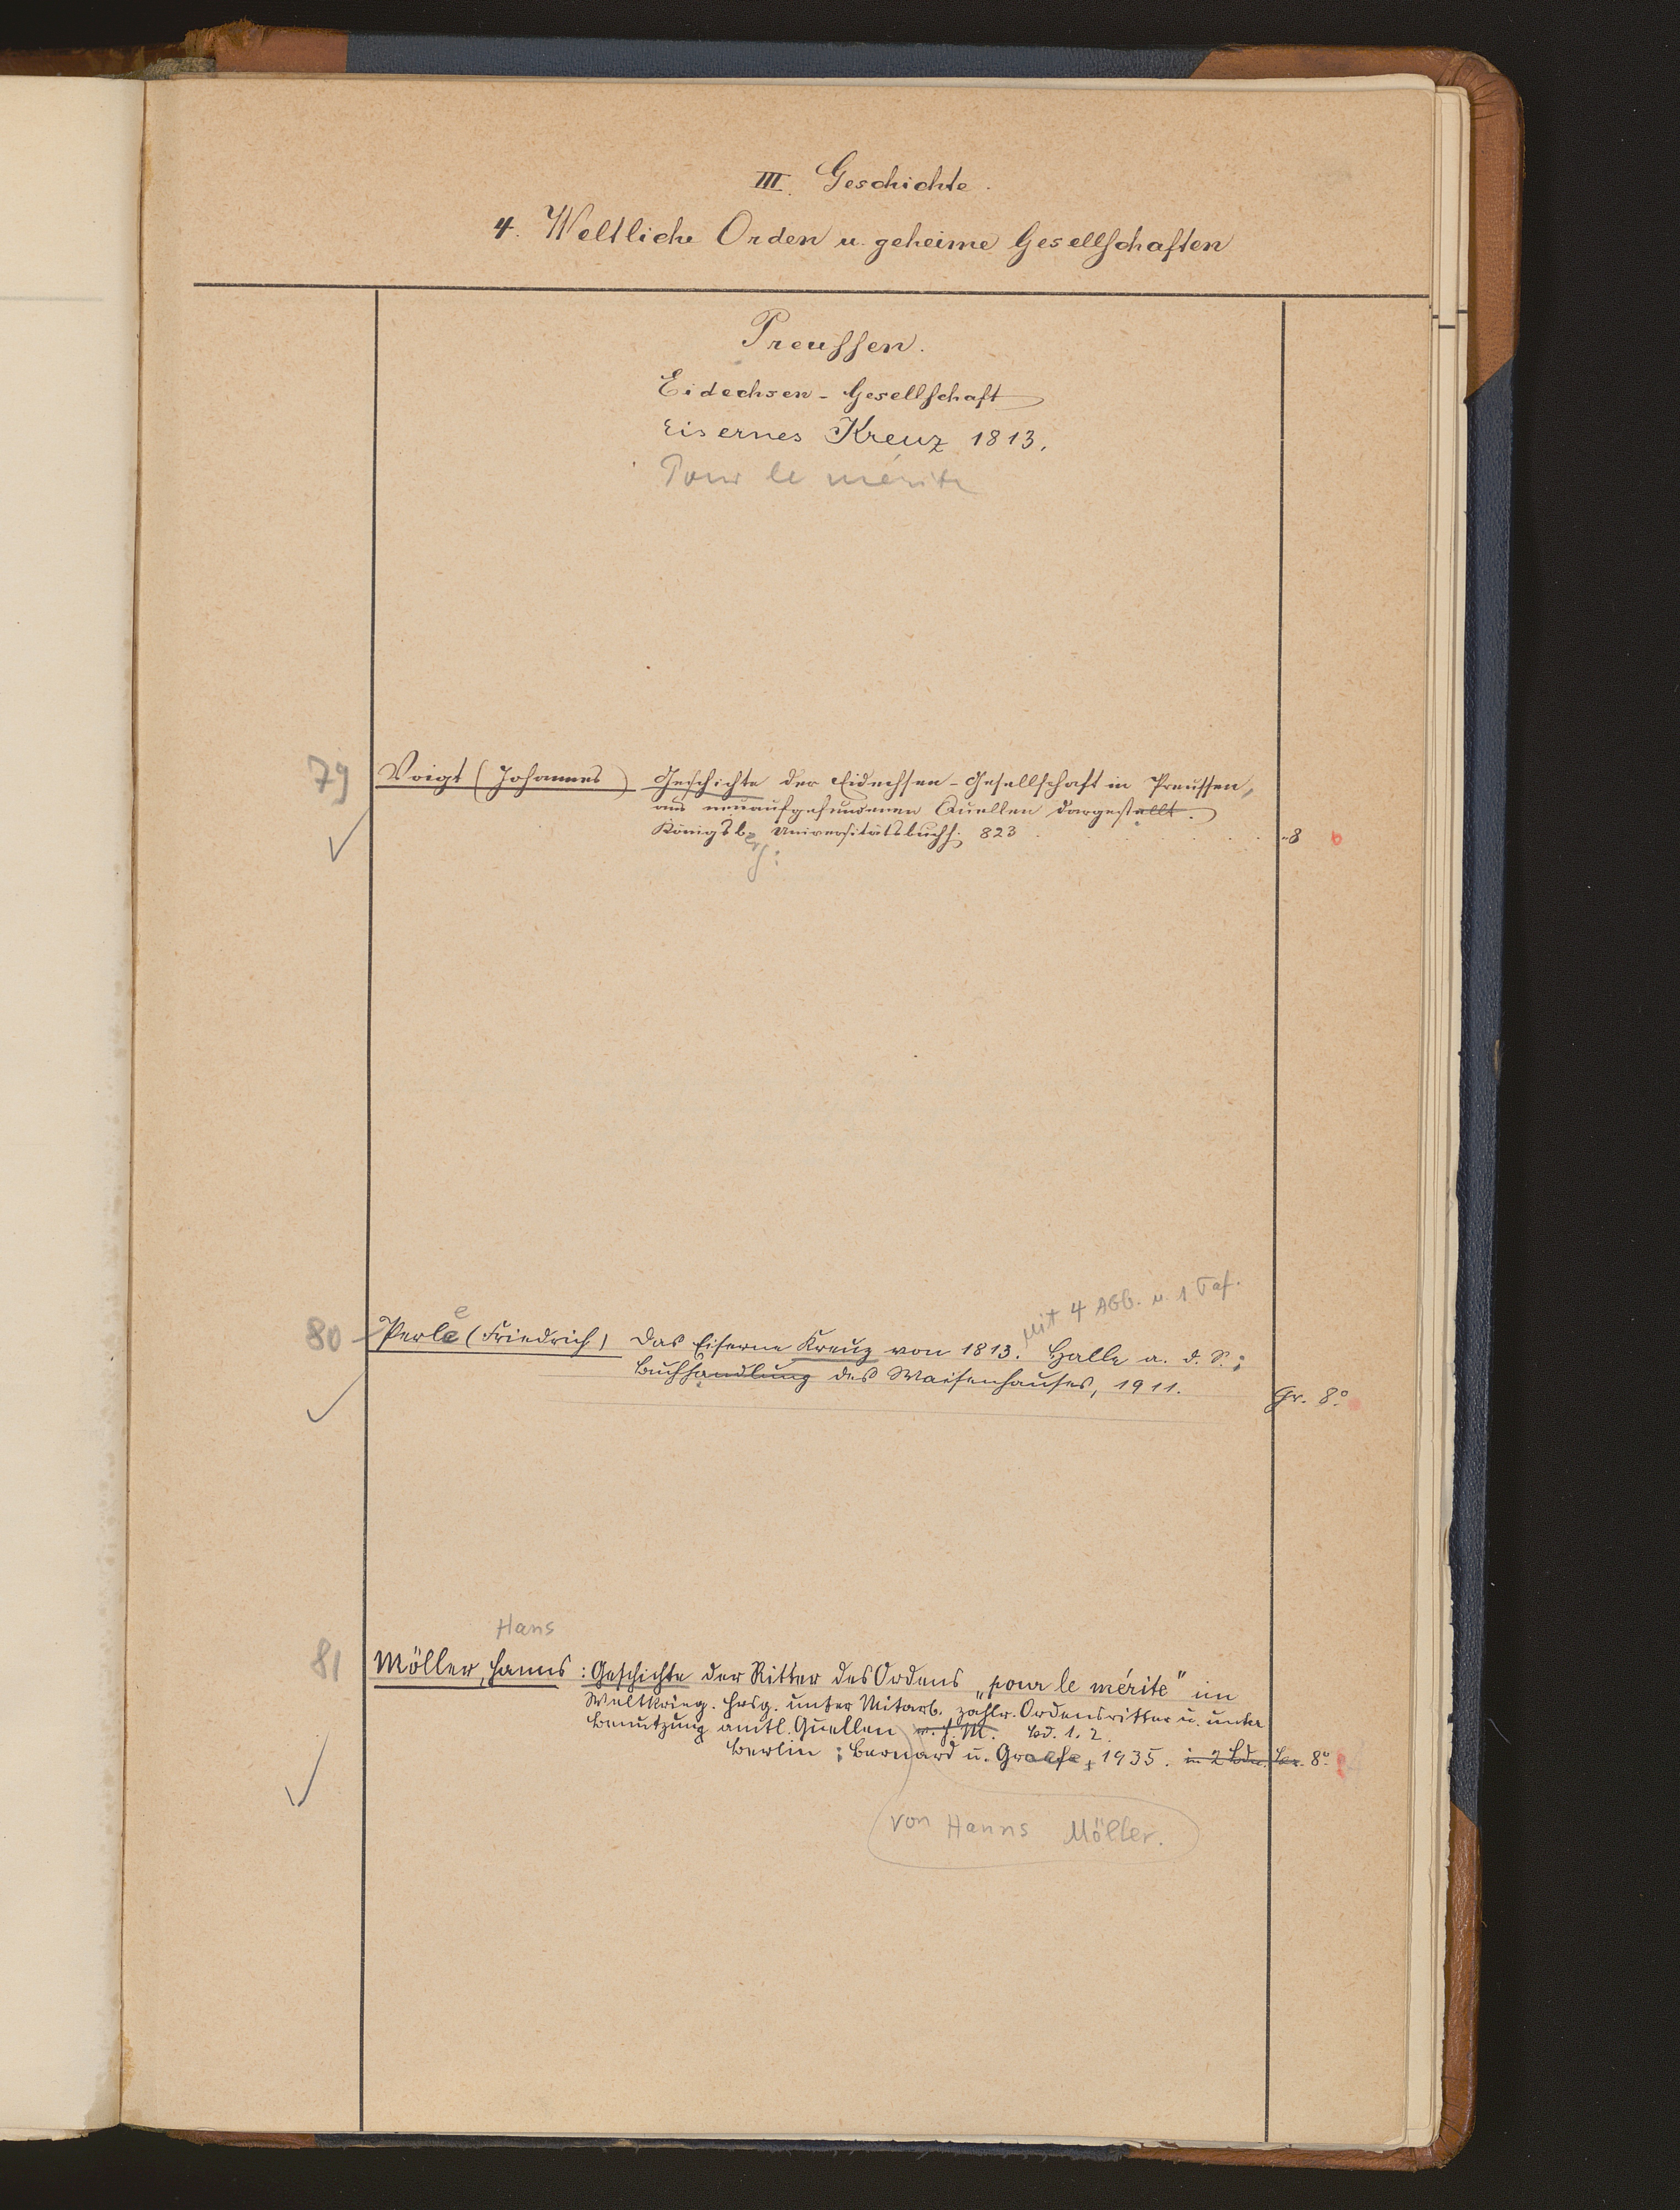 III. Geschichte.
4. Weltliche Orden u. geheime Gesellschaften
Preussen.
Eidechsen-Gesellschaft
Eisernes Kreuz 1813.
Pour le mérite
79 Voigt (Johannes) Geschichte der Eidechsen-Gesellschaft in Preussen,
aus neuaufgefundenen Quellen dargestellt.
Königsberg: Universitätsbuchh. 823 8
mit 4 Abb. u. 1 Taf.
80 Perle (Friedrich) Das Eiserne Kreuz von 1813. Halle a. d. S.:
Buchhandlung des Waisenhauses, 1911.
Gr. 8°.
Hans
81 Möller, Hanns: Geschichte der Ritter des Ordens „pour le mérite" im
Weltkrieg. Hrsg. unter Mitarb. zahlr. Ordensritter u. unter
Benutzung amtl. Quellen v. H. M. Bd. 1. 2.
Berlin: Bernard u. Graefe, 1935. in 2 Bdn. Lex. 8°.
von Hanns Möller.